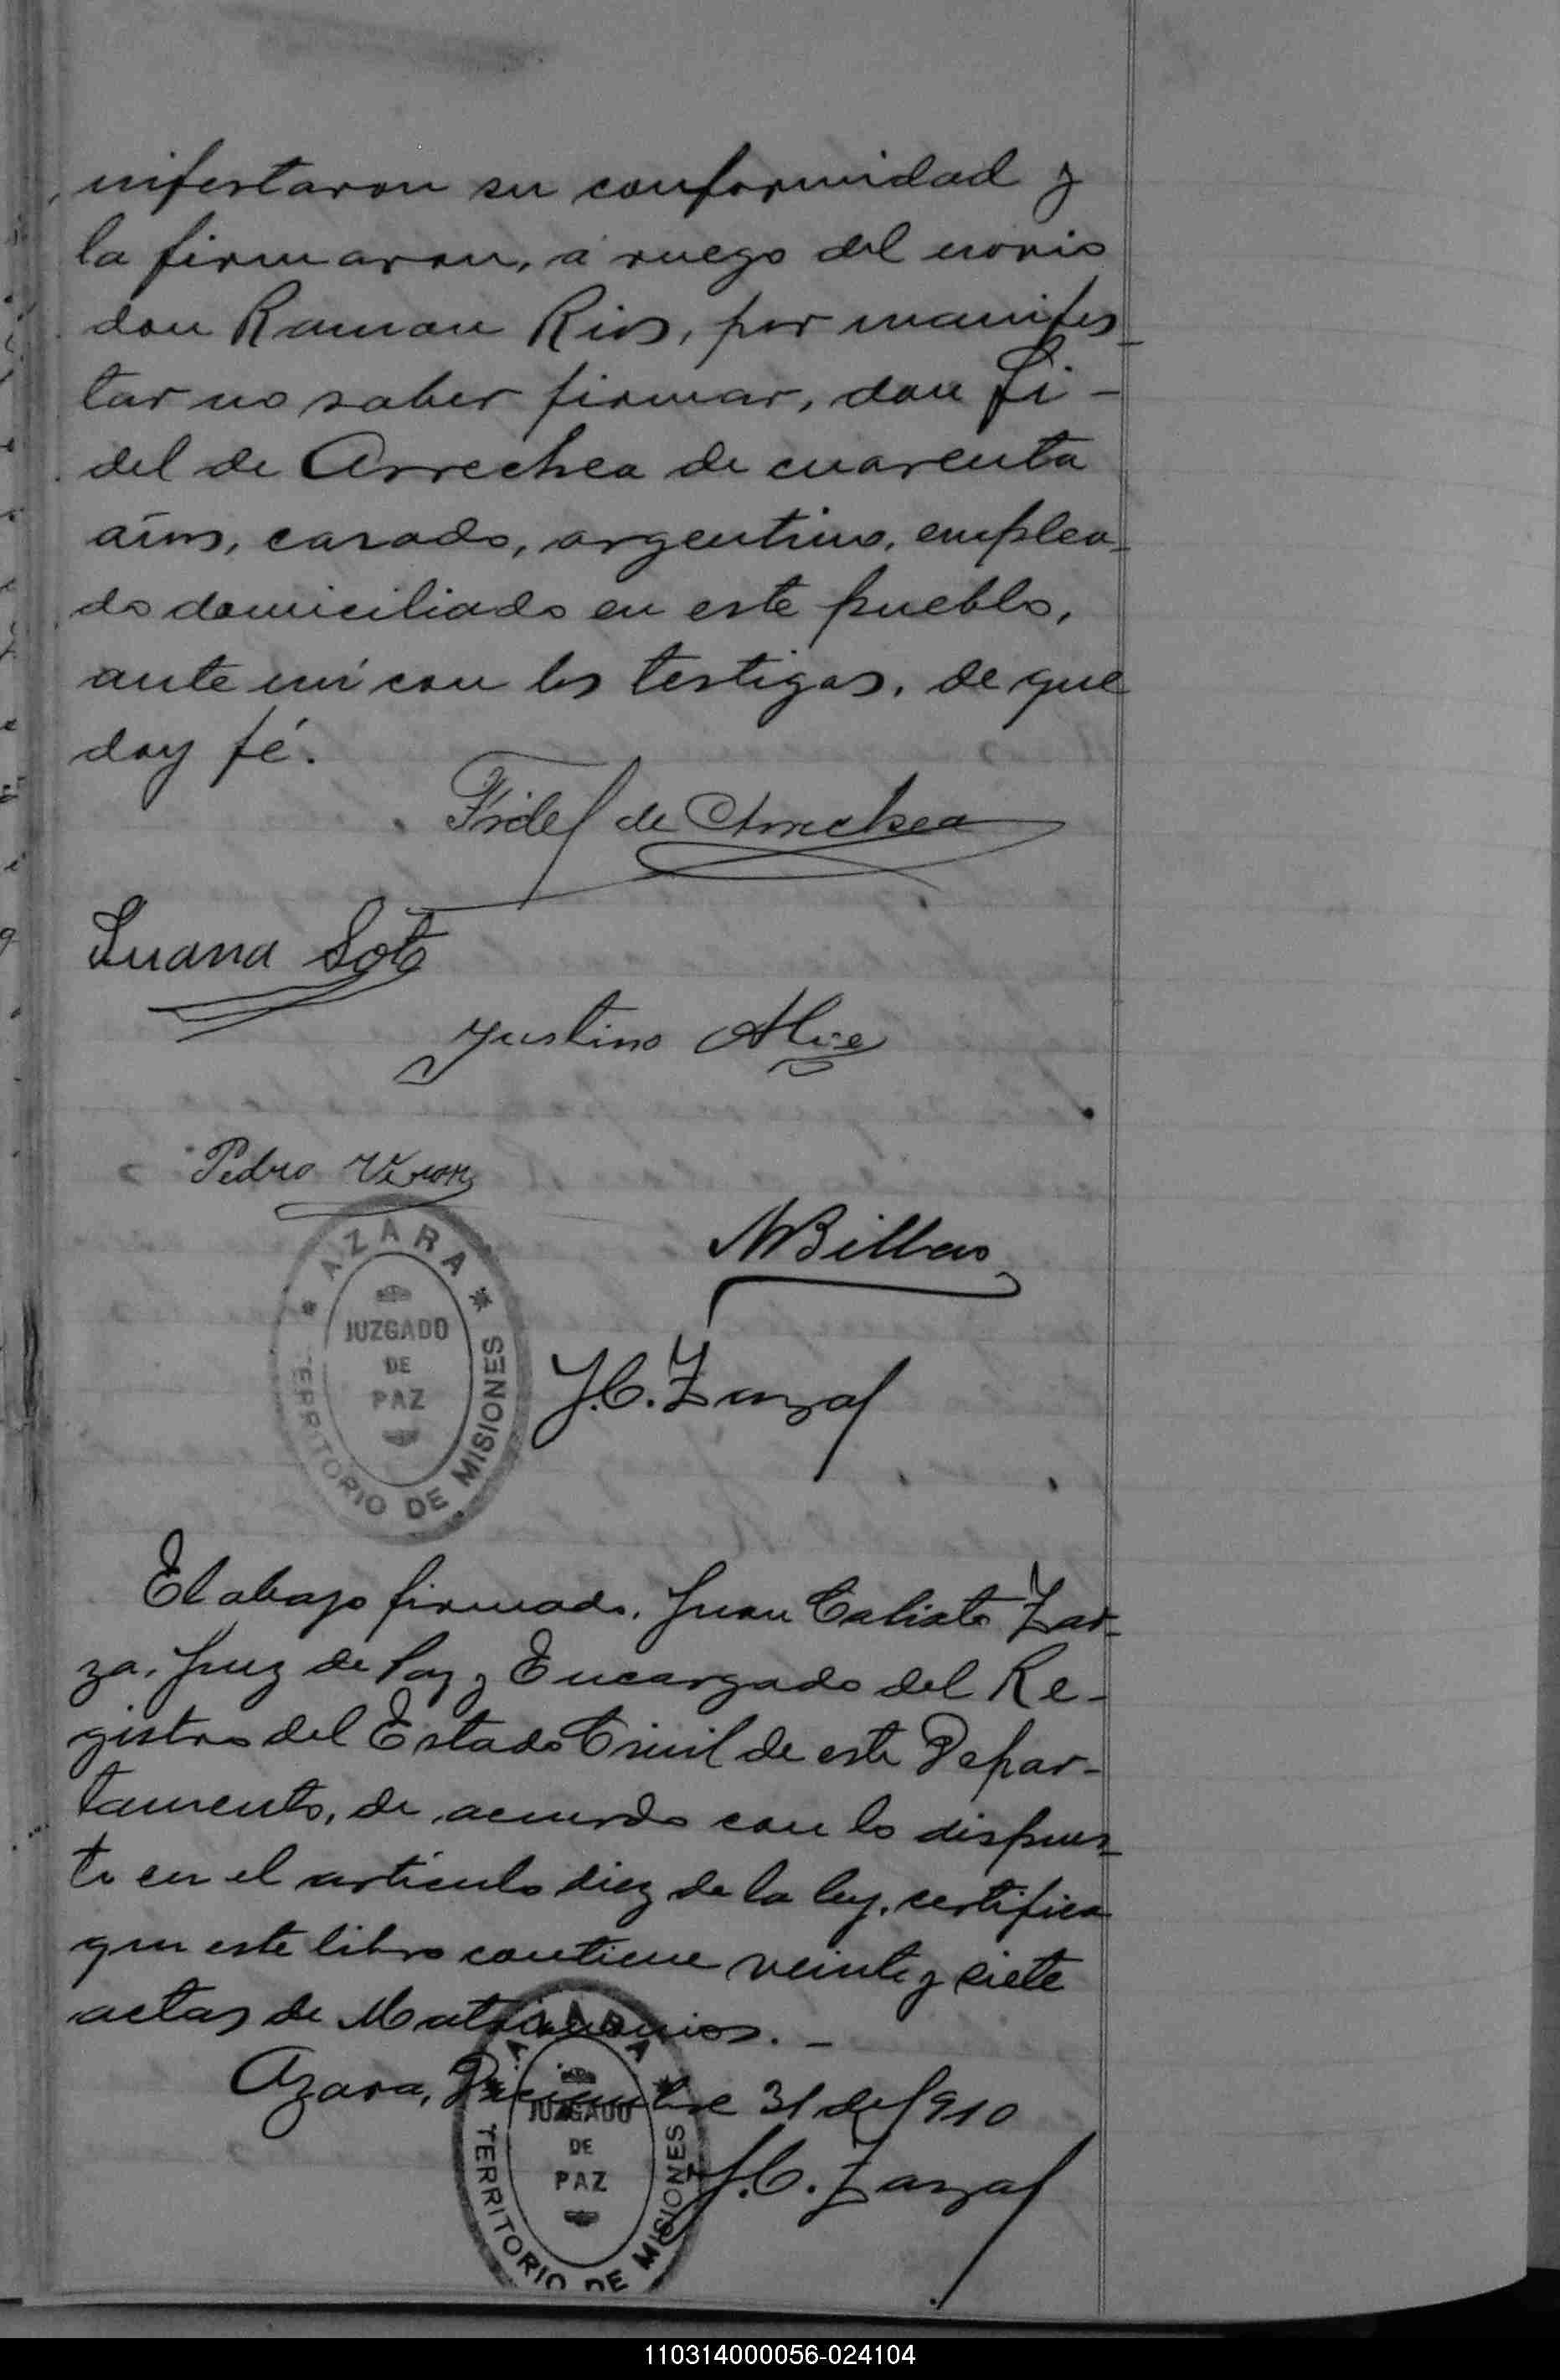 nifestaron su conformidad y
la firmaron, á ruego del novio
don Ramon Rios, por manifes-
tar no saber firmar, don Fi-
del de Arrechea de cuarenta
años, casado, argentino, emplea-
do domiciliado en este pueblo,
ante mí con los testigos, de que
doy fé.
Fidel de Arrechea
Juana Soto
Justino
Pedro Veron
AZARA
JUZGADO
DE
PAZ
TERRITORIO DE MISIONES
J.C. Zarza
El abajo firmado, Juan Calisto Zar-
za, Juez de Paz y Encargado del Re-
gistro del Estado Civil de este Depar-
tamento, de acuerdo con lo dispues-
to en el artículo diez de la ley, certifica
que este libro contiene veinte y siete
actas de Matrimonios. -
Azara, Diciembre 31 de 1910
AZARA
JUZGADO
DE
PAZ
TERRITORIO DE MISIONES
J.C. Zarza
110314000056-024104